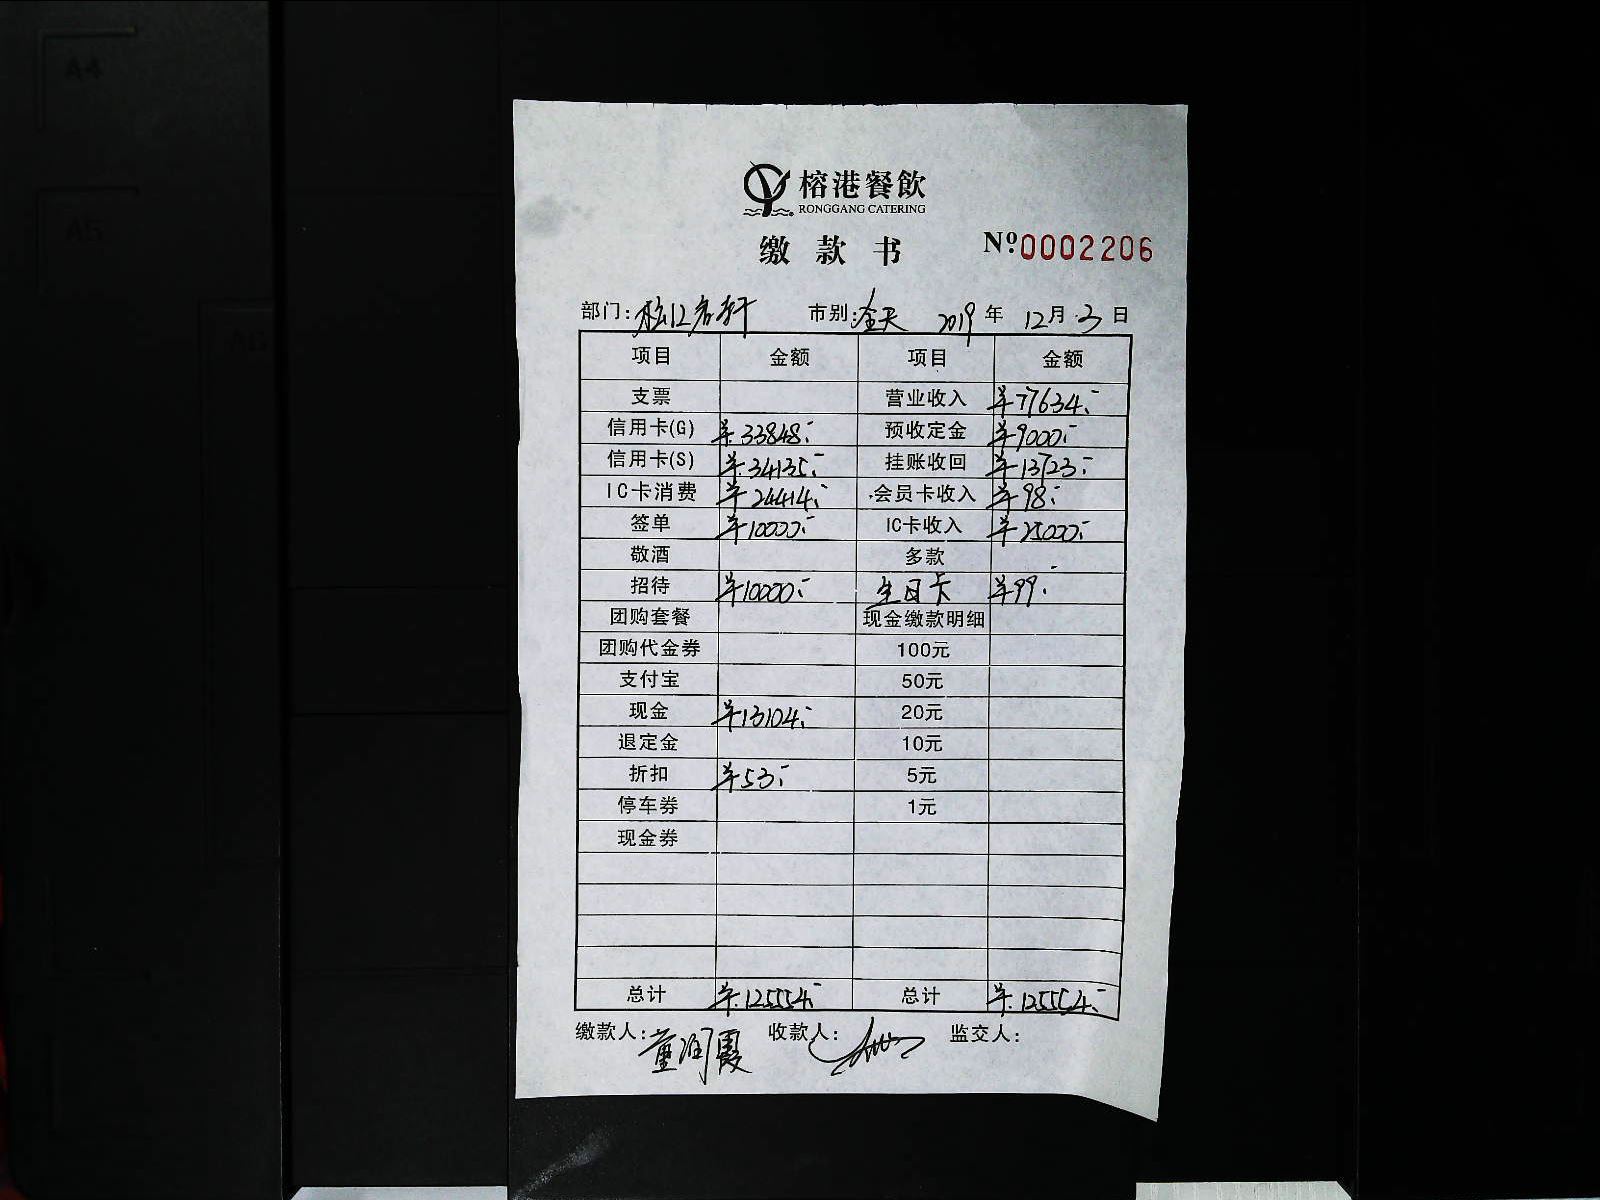 A4
A5
A6
榕港餐飲
RONGGANG CATERING
缴款书 №:0002206
部门:松江名轩 市别:全天 2019年12月3日
项目 金额 项目 金额
支票 营业收入 ¥77634.-
信用卡(G) ¥33848.- 预收定金 ¥9000.-
信用卡(S) ¥34135.- 挂账收回 ¥13723.-
IC卡消费 ¥24414.- 会员卡收入 ¥98.-
签单 ¥10000.- IC卡收入 ¥25000.-
敬酒 多款
招待 ¥10000.- 生日卡 ¥99.-
团购套餐 现金缴款明细
团购代金券 100元
支付宝 50元
现金 ¥13104.- 20元
退定金 10元
折扣 ¥53.- 5元
停车券 1元
现金券
总计 ¥125554.- 总计 ¥125554.-
缴款人:董润霞 收款人: 监交人: